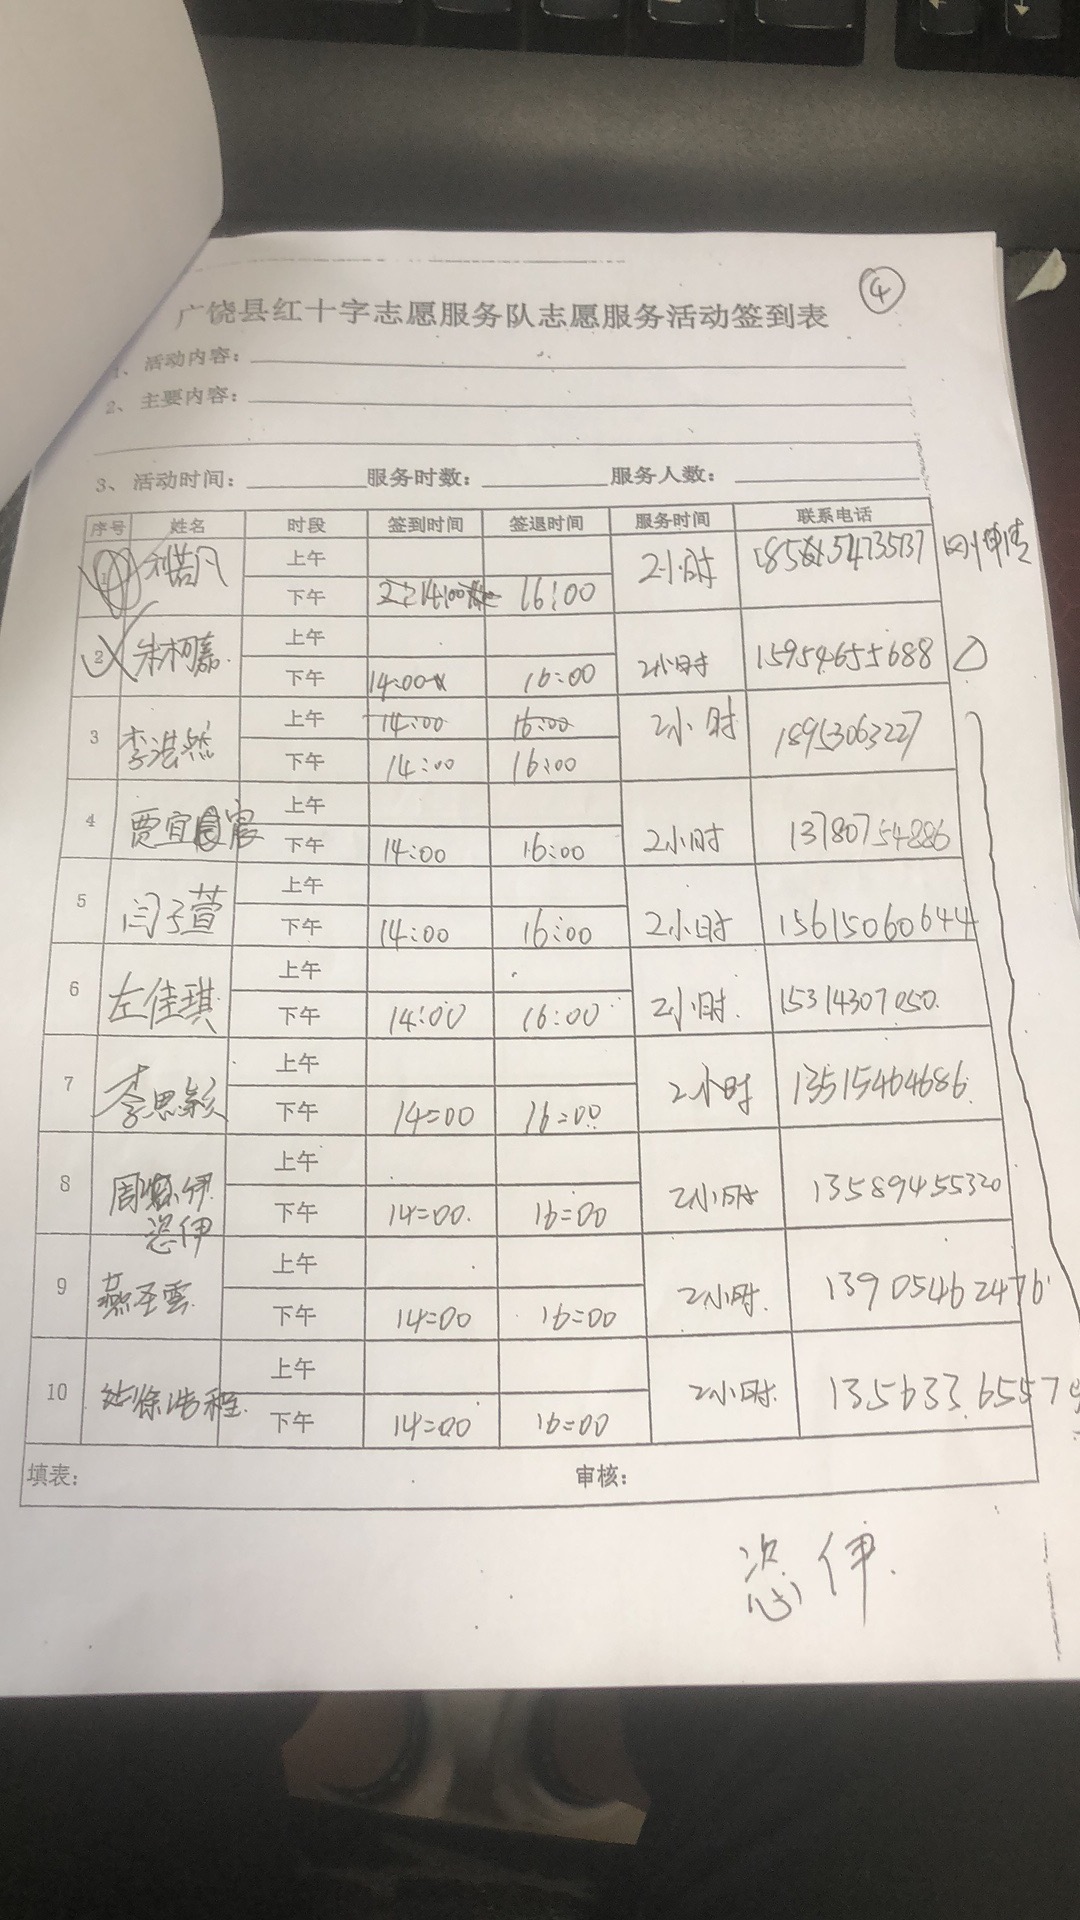 ④
广饶县红十字志愿服务队志愿服务活动签到表
1、活动内容：
2、主要内容：
3、活动时间： 服务时数： 服务人数：
序号 姓名 时段 签到时间 签退时间 服务时间 联系电话
若凡 上午 2小时
下午 14:00 16:00
2 朱柯嘉 上午 2小时 15954655688
下午 14:00 16:00
3 李浩然 上午 14:00 16:00 2小时 18953063227
下午 14:00 16:00
4 贾宜宸 上午 2小时 13780754886
下午 14:00 16:00
5 闫子萱 上午 2小时 15615060644
下午 14:00 16:00
6 左佳琪 上午 2小时 15314307050
下午 14:00 16:00
7 李思颖 上午 2小时 13515464686
下午 14=00 16=00
8 周 伊 上午 2小时 13589455320
恣伊 下午 14=00 16=00
9 燕圣雲 上午 2小时 13905462476
下午 14=00 16=00
10 徐浩程 上午 2小时 1356336557
下午 14=00 16=00
填表： 审核：
恣伊